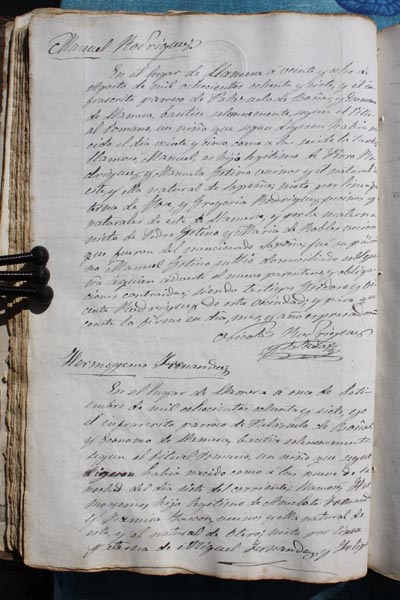 Manuel Rodriguez
En el lugar de Llamera á veinte y ocho de
Agosto de mil ochocientos ochenta y siete, yo el in-
frascrito parroco de Palazuelo de Boñar y Economo
de Llamera, bautice solemnemente, segun el Ritu-
al Romano, un niño que segun digeron habia na-
cido el dia veinte y cinco, como á las siete la tarde
Llamose, Manuel, es hijo legitimo de Juan Ro-
driguez y Manuela vecinos y el natural de
este, y ella natural de nieto por linea pa-
terna de y Gregoria Rodriguez, vecinos y
naturales de este de Llamera, y por la materna
nieto de Pedro y Maria de Robles vecinos
que fueron del mencionado fue su padri-
no Manuel
á quien adverti el nuevo parentesco y obliga-
ciones contraidas; siendo testigos Isidoro y Vi-
centa Rodriguez de esta vecindad; y para que
conste lo firmo en dia, mes, y año espresados
Nicolás Rodriguez
Hermogenes Fernandez
En el lugar de Llamera á once de Set-
iembre de mil ochocientos ochenta y siete, yo
el infrascrito parroco de Palazuelo de Boñar
y Economo de Llamera, bautice solemnemente
segun el Ritual Romano, un niño que segun
digeron habia nacido como á las nueve de la
noche del dia siete del corriente, llamose, Her-
mogenes hijo legitimo de Fernandez
y vecinos y ella natural de
este, y el natural de Otero; nieto por linea
paterna de Miguel Fernandez, y